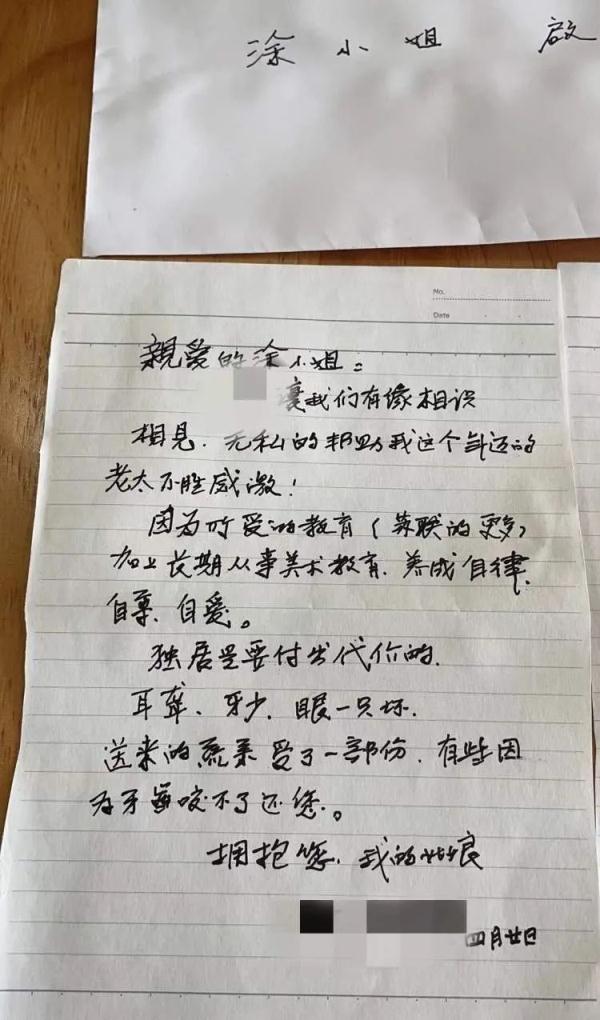 涂小姐 啟
No.
Date
親爱的涂小姐：
让我们有像相识
相見．无私的邦助我这个年迈的
老太不胜感激！
因为所受的教育（苏联的更多）
加上长期从事美术教育．养成自律．
自尊．自爱。
独居是要付出代价的．
耳聋、牙少．眼一只坏．
送来的蔬菜受了一部份．有些因
为牙咬不了还您。
拥抱您．我的姑娘
四月廿日